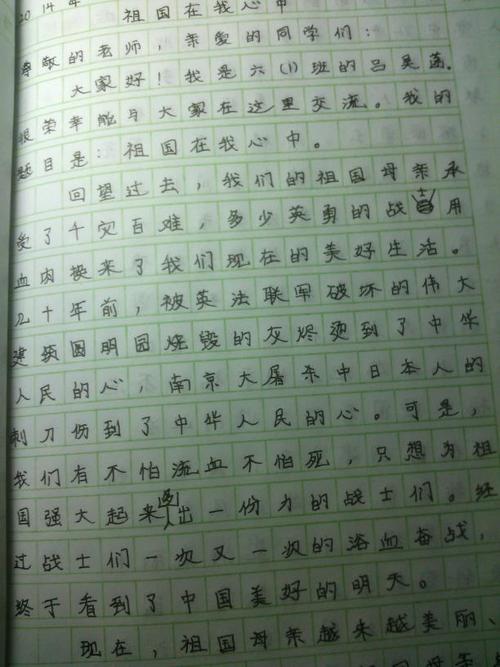 2014年 祖国在我心中
尊敬的老师，亲爱的同学们：
大家好！我是六(1)班的吕昊菡。
很荣幸能与大家在这里交流。我的
题目是：祖国在我心中。
回望过去，我们的祖国母亲承
受了千灾百难，多少英勇的战士用
血肉换来了我们现在的美好生活。
几十年前，被英法联军破坏的伟大
建筑圆明园烧毁的灰烬烫到了中华
人民的心，南京大屠杀中日本人的
刺刀伤到了中华人民的心。可是，
我们有不怕流血不怕死，只想为祖
国强大起来出一份力的战士们。经
过战士们一次又一次的浴血奋战，
终于看到了中国美好的明天。
现在，祖国母亲越来越美丽、